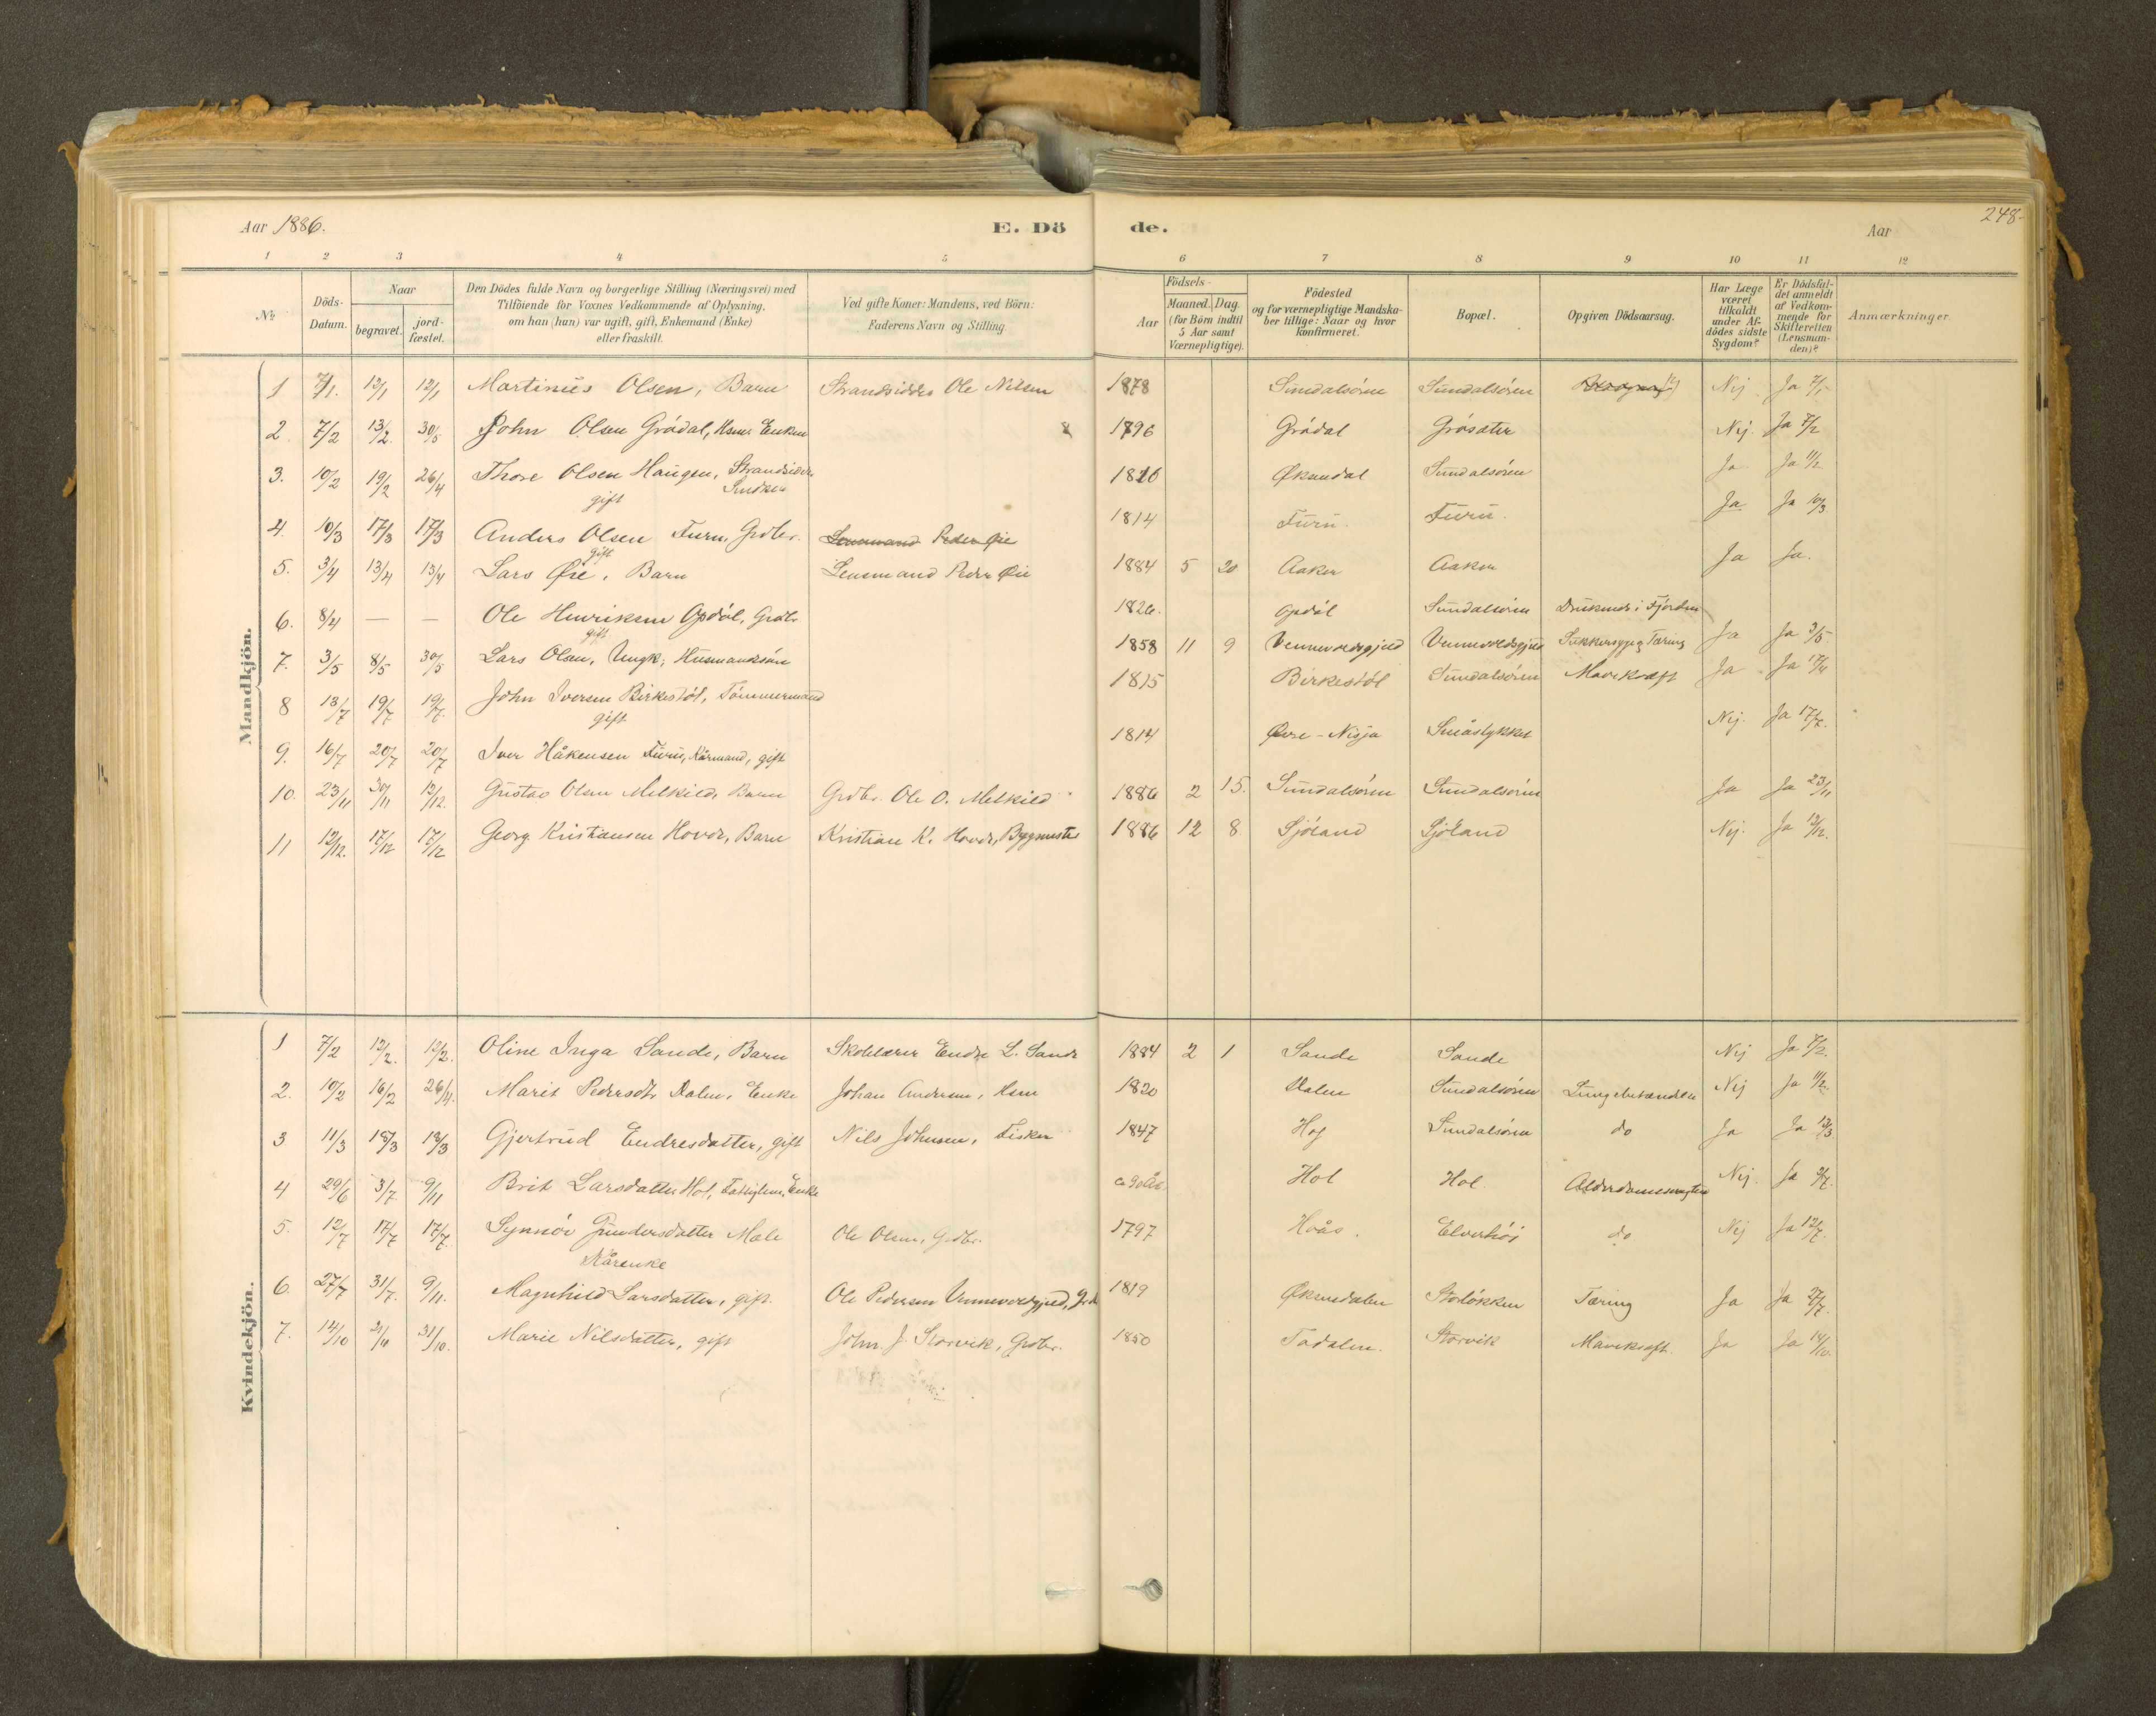 Aar 1886.
E. Dö
de.
Aar
248.
1 2 3 4 5 6 7 8 9 10 11 12
No
Döds-Datum.
Naar
begravet.
jord-fæstet.
Den Dödes fulde Navn og borgerlige Stilling (Næringsvei) med
Tilföiende for Voxnes Vedkommende af Oplysning,
om han (hun) var ugift, gift, Enkemand (Enke)
eller fraskilt.
Ved gifte Koner: Mandens, ved Börn:
Faderens Navn og Stilling.
Aar
Födsels-
Maaned. Dag.
(for Börn indtil
5 Aar samt
Værnepligtige).
Födested
og for værnepligtige Mandska-
ber tillige: Naar og hvor
konfirmeret.
Bopæl.
Opgiven Dödsaarsag.
Har Læge
været
tilkaldt
under Af-
dödes sidste
Sygdom?
Er Dödsfal-
det anmeldt
af Vedkom-
mende for
Skifteretten
(Lensman-
den)?
Anmærkninger.
Mandkjön.
1 7/1. 12/1 12/1 Martinus Olsen, Barn Strandsidder Ole Nilsen 1878 Sundalsören Sundalsören Nej Ja 7/1
2. 7/2 13/2 30/5 John Olsen Grödal, Hsm. Enkem 1796 Grödal Grösæter Nej. Ja 7/2
3. 10/2 19/2 26/4 Thore Olsen Haugen, Strandsidder gift 1820 Øksendal Sundalsören Ja Ja 11/2
4. 10/3 17/3 17/3 Anders Olsen Furu, Grdbr. gift Lensmand Peder Øie 1814 Furu. Furu. Ja Ja 10/3
5. 3/4 13/4 13/4 Lars Øie, Barn Lensmand Peder Øie 1884 5 20 Aaker Aaker Ja Ja.
6. 8/4 — — Ole Henriksen Opdöl, Grdbr. gift 1826. Opdöl Sundalsören Druknede i Fjorden
7. 3/5 8/5 30/5 Lars Olsen, Ungk, Husmandssön 1858 11 9 Vennevoldsgjerd Vennevoldsgjerd Sukkersyge, Tæring Ja Ja 3/5
8 13/7 19/7 19/7. John Iversen Birkestöl, Tömmermand gift 1815 Birkestöl Sundalsören Mavekræft Ja Ja
9. 16/7 20/7 20/7 Iver Håkensen Furu, Kårmand, gift 1814 Øvre-Nisja Småstykket Nej. Ja 17/7.
10. 23/11 30/11 13/12. Gustav Olsen Melkild, Barn Grdbr. Ole O. Melkild 1886 2 15. Sundalsören Sundalsören Ja Ja 23/11
11 12/12. 17/12 17/12 Georg Kristiansen Hovde, Barn Kristian K. Hovde, Bygmester 1886 12 8 Sjöland Sjöland Nej. Ja 12/12.
Kvindekjön.
1 7/2 12/2. 12/2. Oline Inga Sande, Barn Skolelærer Endre L. Sande 1884 2 1 Sande Sande Nej Ja 7/2.
2. 10/2 16/2 26/4. Marit Pedersdtr Dalen, Enke Johan Andersen, Hsm 1820 Dalen Sundalsören Lungebetændelse Nej Ja 11/2.
3 11/3 18/3 18/3 Gjertrud Endresdatter, gift Nils Johnsen, Fisker 1847 Hof Sundalsören do Ja Ja 12/3
4 29/6 3/7 9/11 Brit Larsdatter Hol, Fattiglem, Enke Ca 90 År. Hol Hol Alderdomssvaghed Nej. Ja 2/7.
5. 12/7 17/7 17/7. Synnöv Gundersdatter Mæle Kårenke Ole Olsen, Grdbr. 1797 Hoås. Elverhöi do Nej Ja 12/7.
6. 27/7 31/7. 9/11. Magnhild Larsdatter, gift Ole Pedersen Vennevoldsgjerd, 1819 Øksendalen Storløkken Tæring Ja Ja 27/7.
7. 14/10 31/10. Marie Nilsdatter, gift John. J. Storvik, Grdbr. 1850 Todalen. Storvik Mavekræft. Ja Ja 14/10.